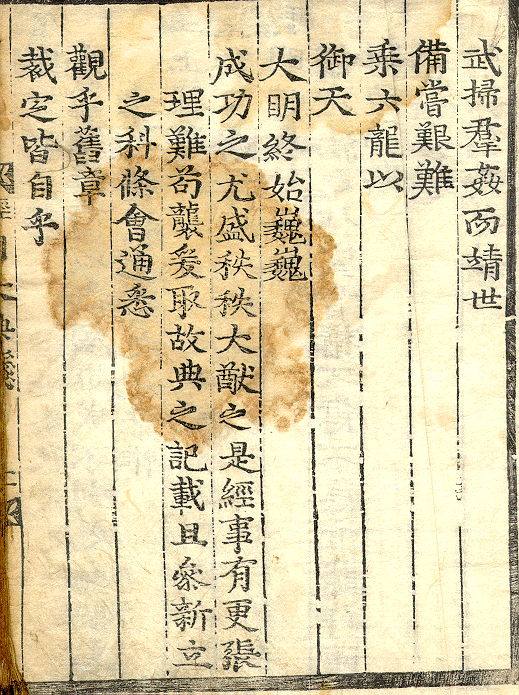 武掃羣姦而靖世
備嘗艱難
乘六龍以
御天
大明終始巍巍
成功之尤盛秩秩大猷之是經事有更張
理難苟襲爰取故典之記載且叅新立
之科條會通悉
觀乎舊章
裁定皆自乎